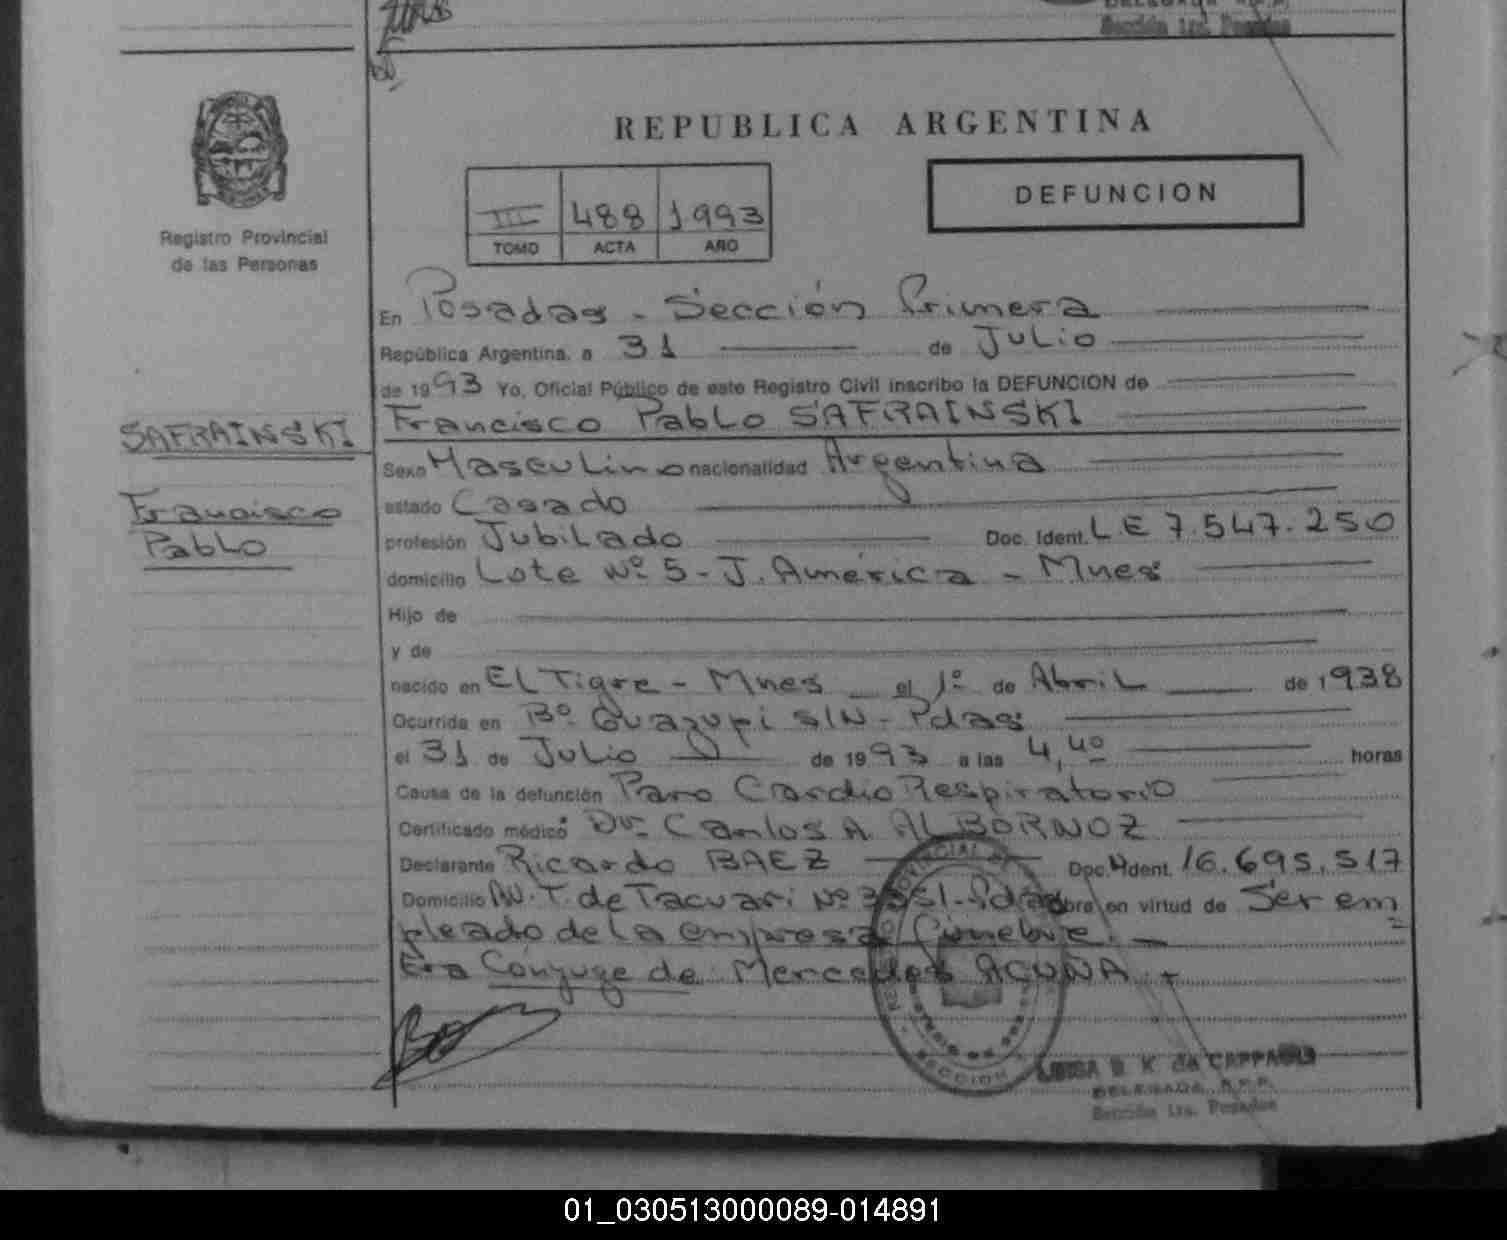 Sección 1ra. Posadas
REPUBLICA ARGENTINA
DEFUNCION
III 488 1993
TOMO ACTA AÑO
Registro Provincial
de las Personas
En Posadas - Sección Primera
República Argentina, a 31 de Julio
de 1993 Yo, Oficial Público de este Registro Civil inscribo la DEFUNCION de
Francisco Pablo SAFRAINSKI
SAFRAINSKI
Francisco
Pablo
Sexo Masculino nacionalidad Argentina
estado Casado
profesión Jubilado Doc. Ident. L.E 7.547.250
domicilio Lote Nº 5 - J. América - Mnes
Hijo de
y de
nacido en El Tigre - Mnes el 1º de Abril de 1938
Ocurrida en Bº Guazupi S/N - Pdas
el 31 de Julio de 1993 a las 4,40 horas
Causa de la defunción Paro Cardio Respiratorio
Certificado médico Dr. Carlos A. ALBORNOZ
Declarante Ricardo BAEZ Doc. Ident. 16.695.517
Domicilio AV. T. de Tacuari Nº - Pdas obra en virtud de Ser em
pleado de la empresa fúnebre. -
Era Cónyuge de Mercedes ACUÑA
SECCION
LUISA B. K. de CAPPA
DELEGADA R.P.P.
Sección 1ra. Posadas
01_030513000089-014891